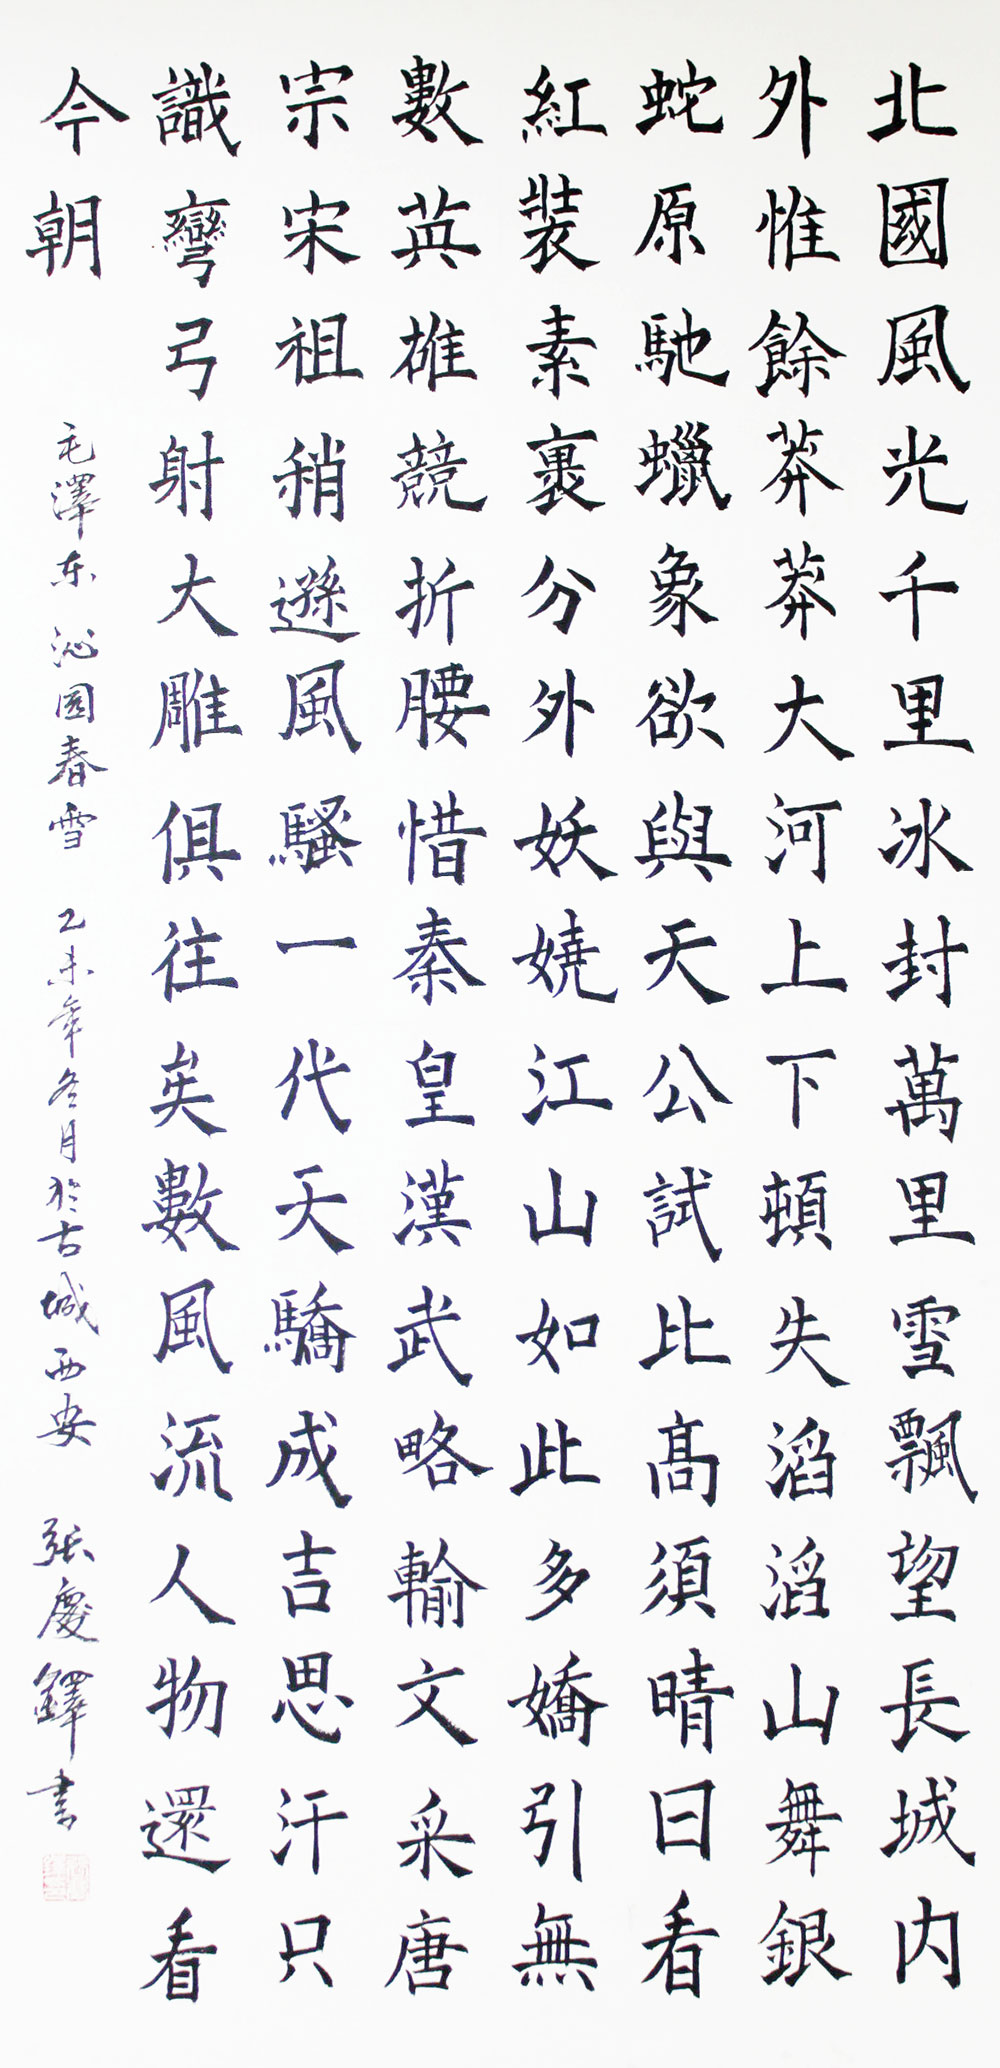 北國風光千里冰封萬里雪飄望長城内
外惟餘莽莽大河上下頓失滔滔山舞銀
蛇原馳蠟象欲與天公試比高須晴日看
紅裝素裹分外妖嬈江山如此多嬌引無
數英雄競折腰惜秦皇漢武略輸文采唐
宗宋祖稍遜風騷一代天驕成吉思汗只
識彎弓射大雕俱往矣數風流人物還看
今朝
毛澤东 沁園春雪 乙未年冬月於古城西安 張慶鐸書